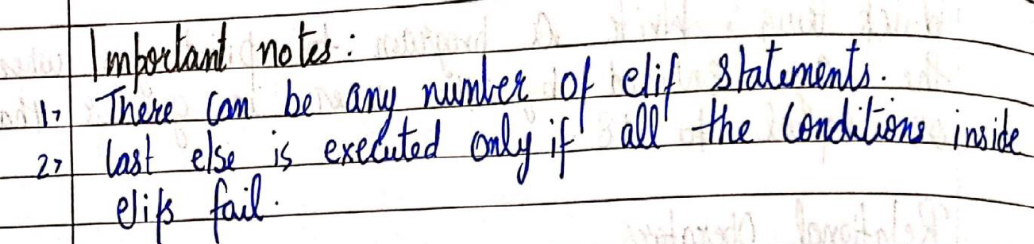 Important notes:
1> There can be any number of elif statements.
2> last else is executed only if all the conditions inside
elifs fail.